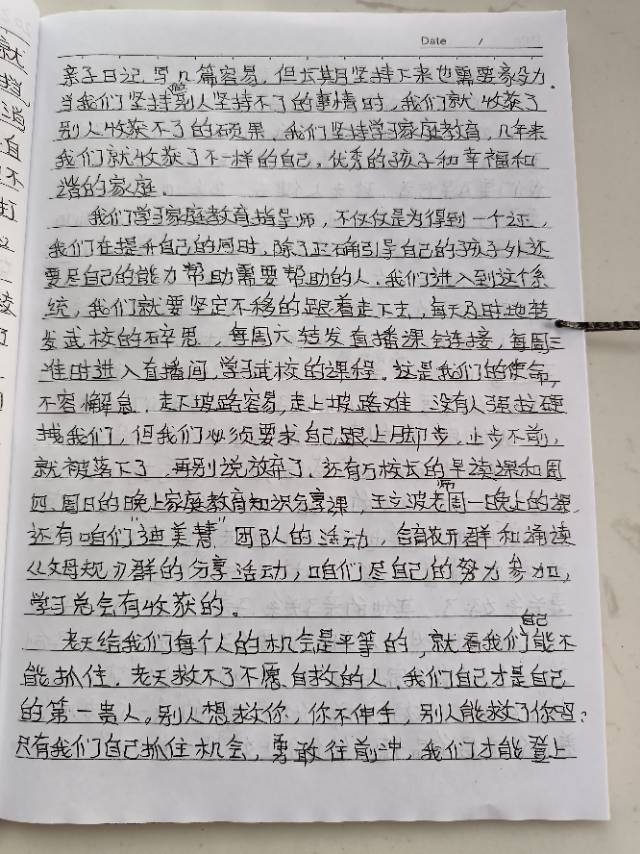 Date /
亲子日记写几篇容易，但长期坚持下来也需要毅力。
当我们坚持别人坚持不了的事情时，我们就收获了
别人收获不了的硕果，我们坚持学习家庭教育，几年来
我们就收获了不一样的自己，优秀的孩子和幸福和
谐的家庭。
我们学习家庭教育指导师，不仅仅是为得到一个证，
我们在提升自己的同时，除了正确引导自己的孩子外还
要尽自己的能力帮助需要帮助的人。我们进入到这个系
统，我们就要坚定不移的跟着走下去，每天及时地转
发武校的碎思，每周六转发直播课连接，每周三
准时进入直播间，学习武校的课程。这是我们的使命，
不容懈怠。走下坡路容易，走上坡路难，没有人强拉硬
拽我们，但我们必须要求自己跟上脚步，止步不前，
就被落下了，再别说放弃了。还有万校长的早读课和周
四、周日的晚上家庭教育知识分享课，王立波老师周一晚上的课，
还有咱们“迪美慧”团队的活动，群和诵读
《父母规》群的分享活动，咱们尽自己的努力参加，
学习总会有收获的。
老天给我们每个人的机会是平等的，就看我们自己能不
能抓住。老天救不了不愿自救的人，我们自己才是自己
的第一贵人。别人想救你，你不伸手，别人能救了你吗？
只有我们自己抓住机会，勇敢往前冲，我们才能登上